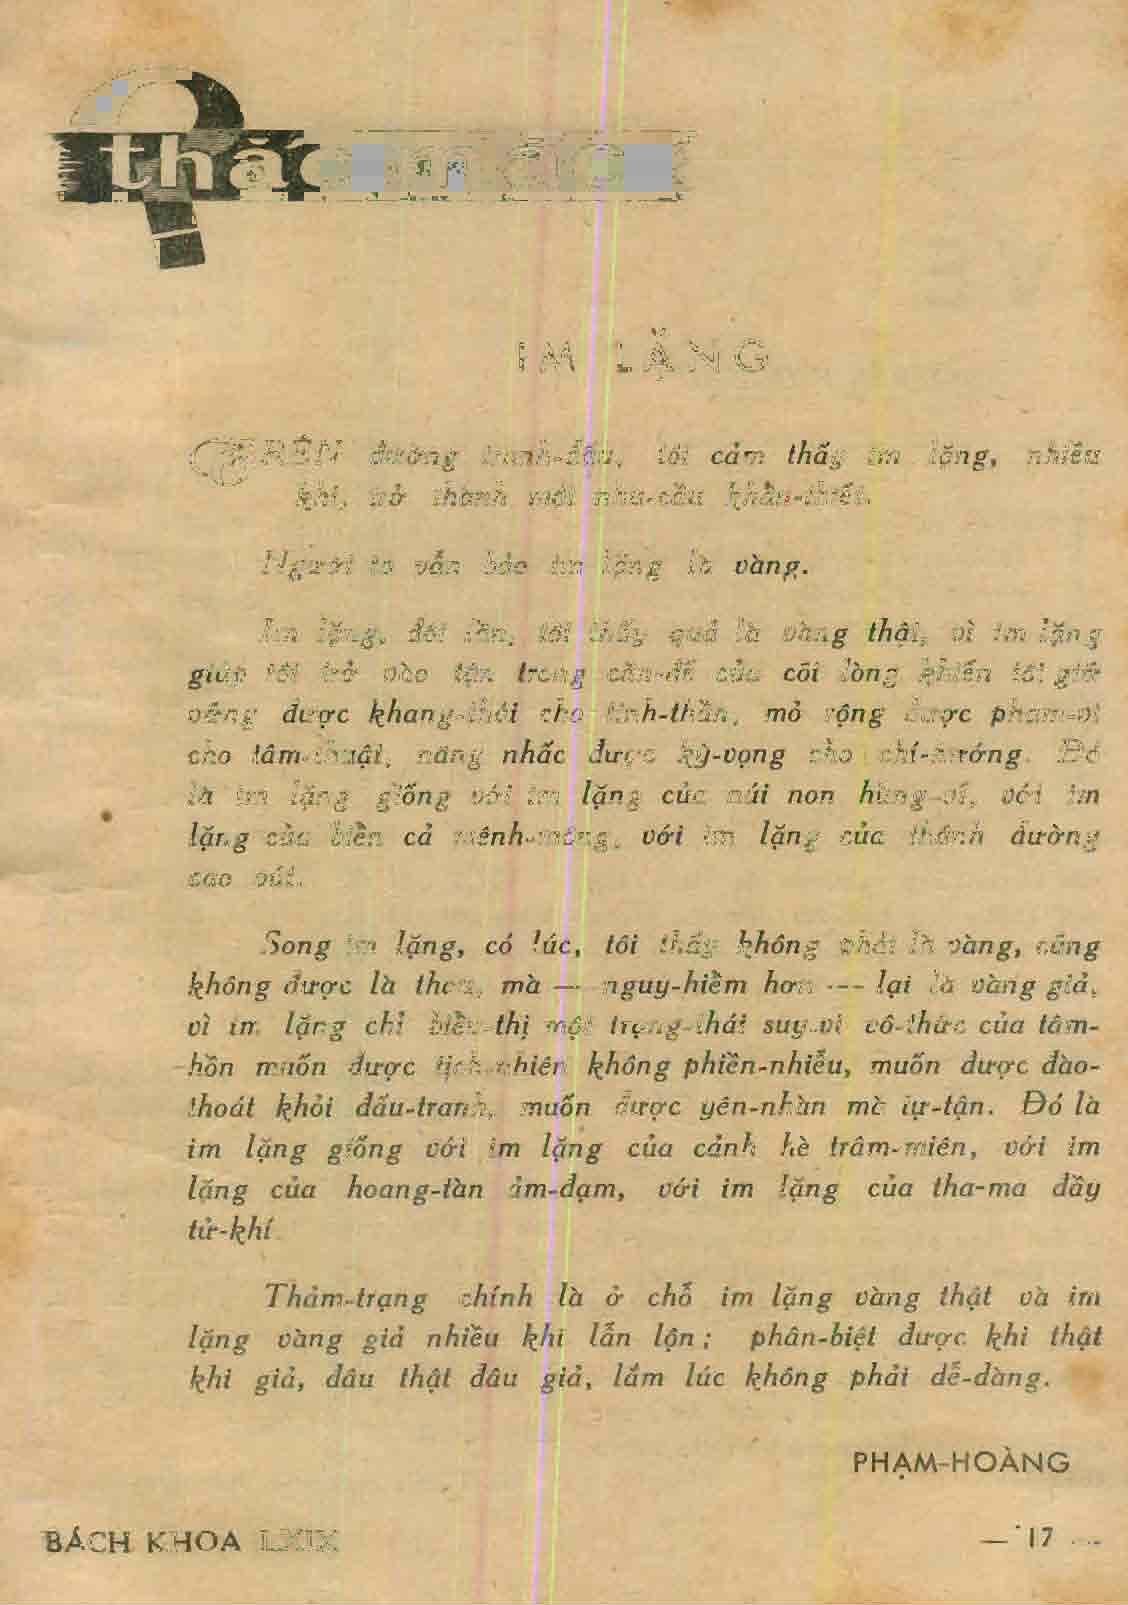 thắc mắc
IM LẶNG
TRÊN đường tranh-đấu, tôi cảm thấy im lặng, nhiều
khi, trở thành một nhu-cầu khẩn-thiết.
Người ta vẫn bảo im lặng là vàng.
Im lặng, đôi lần, tôi thấy quả là vàng thật, vì im lặng
giúp tôi trở vào tận trong căn-để của cõi lòng khiến tôi giữ
vững được khang-thái cho tinh-thần, mở rộng được phạm-vi
cho tâm-thuật, nâng nhấc được kỳ-vọng cho chí-hướng. Đó
là im lặng giống với im lặng của núi non hùng-vĩ, với im
lặng của biển cả mênh-mông, với im lặng của thánh đường
cao vút.
Song im lặng, có lúc, tôi thấy không phải là vàng, cũng
không được là thau, mà — nguy-hiểm hơn — lại là vàng giả,
vì im lặng chỉ biểu-thị một trạng-thái suy-vi cô-thức của tâm-
hồn muốn được tịch-nhiên không phiền-nhiễu, muốn được đào-
thoát khỏi đấu-tranh, muốn được yên-nhàn mà tự-tận. Đó là
im lặng giống với im lặng của cảnh hè trầm-miên, với im
lặng của hoang-tàn ảm-đạm, với im lặng của tha-ma đầy
tử-khí.
Thảm-trạng chính là ở chỗ im lặng vàng thật và im
lặng vàng giả nhiều khi lẫn lộn ; phân-biệt được khi thật
khi giả, đâu thật đâu giả, lắm lúc không phải dễ-dàng.
PHẠM-HOÀNG
BÁCH KHOA LXIX
— 17 —